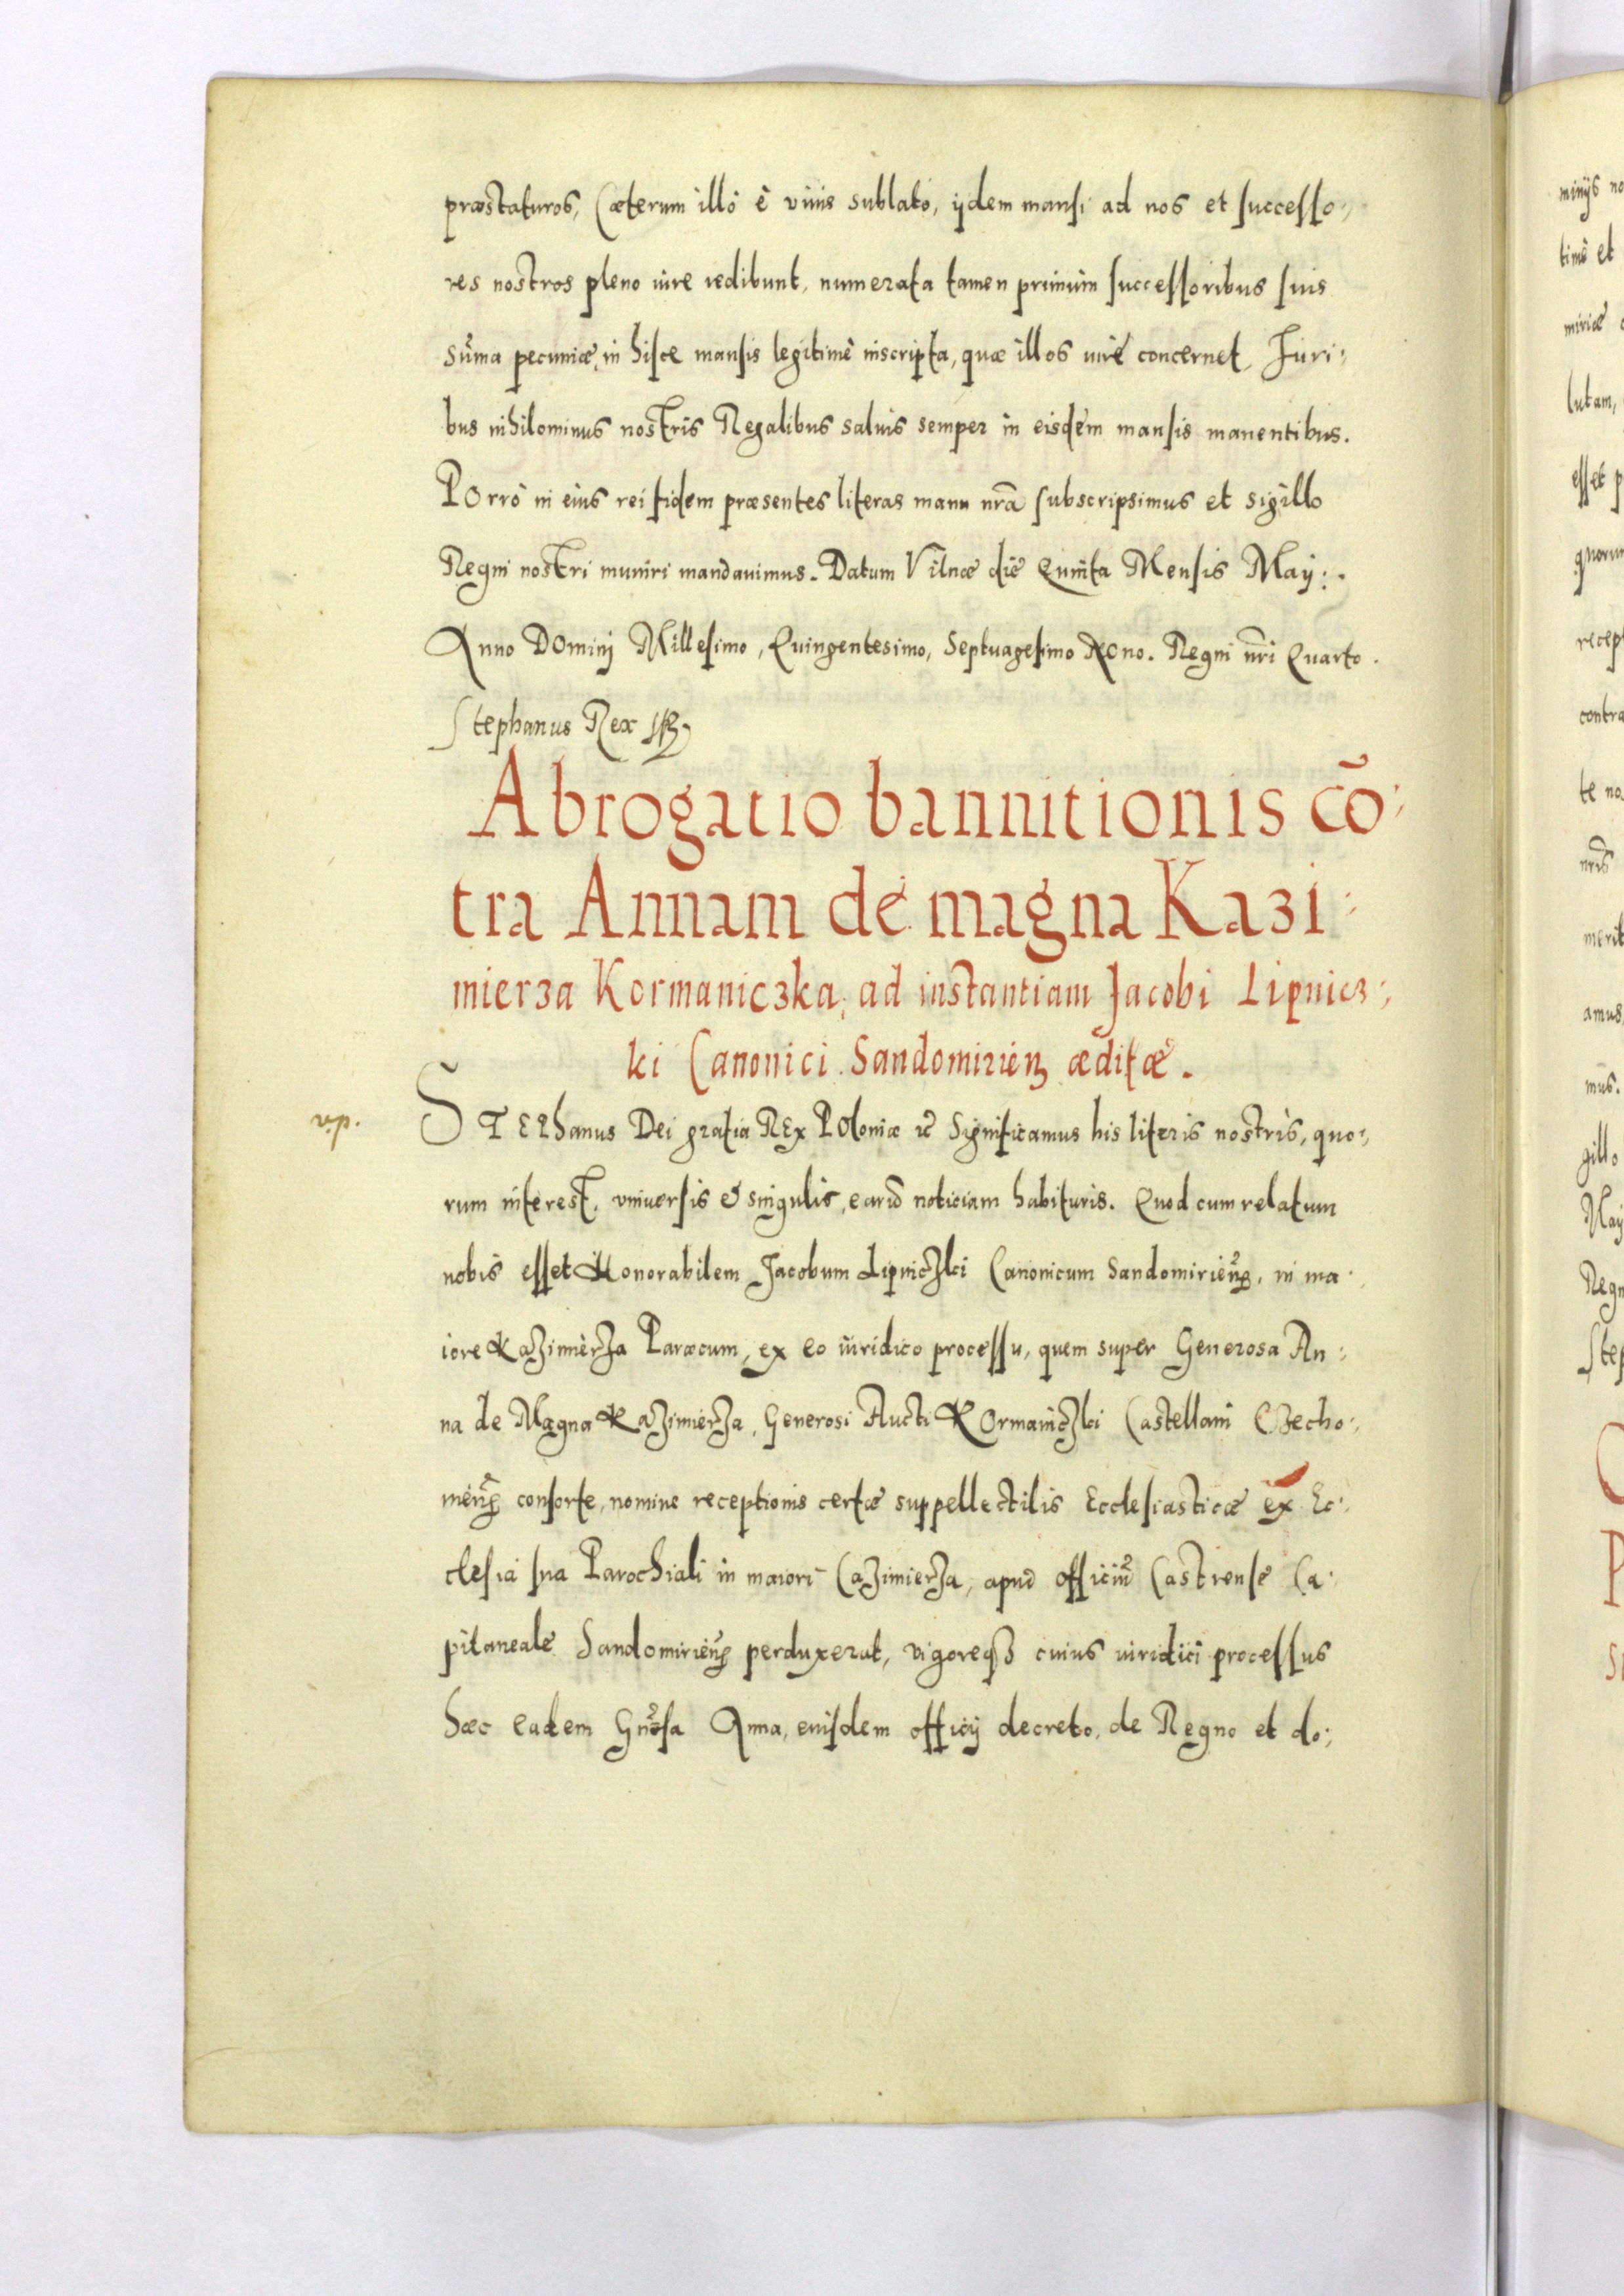 præstaturos, Cæterum illo è viuis sublato, ijdem mansi ad nos et successo:
res nostros pleno iure redibunt, numerata tamen primùm successoribus suis
sum̃a pecuniæ, in hisce mansis legitimè inscripta, quæ illos iure concernet, Iuri:
bus nihilominus nostris Regalibus saluis semper in eisdem mansis manentibus.
Porrò in eius rei fidem præsentes literas manu nr̃a subscripsimus et sigillo
Regni nostri muniri mandauimus. Datum Vilnæ die Quinta Mensis Maij:.
Anno Dominj Millesimo, Quingentesimo, Septuagesimo Nono. Regni nr̃i Quarto.
Stephanus Rex
Abrogatio bannitionis cō:
tra Annam de magna Kazi:
mierza Kormaniczka, ad instantiam Jacobi Lipnicz:
ki Canonici Sandomirien̄ æditæ.
v.p.
STEPhanus Dei gratia REx Poloniæ etc Significamus his literis nostris, quo:
rum interest, vniuersis & singulis, earum̃ noticiam habituris. Quod cum relatum
nobis esset Honorabilem Jacobum Lipniczki Canonicum Sandomirien̄, in ma:
iore Kazimierza Paræcum, ex eo iuridico processu, quem super Generosa An:
na de Magna Kazimierza, Generosi Aucti Kormaniczki Castellani Czecho:
uien̄ consorte, nomine receptionis certæ suppellectilis Ecclesiasticæ ex Ec:
clesia sua Parochiali in maiori Cazimierza, apud officiũ Castrense Ca:
pitaneale Sandomirien̄ perduxerat, vigoreq3 cuius iuridici processus
hæc eadem Gñosa Anna, eiusdem officij decreto, de Regno et do: